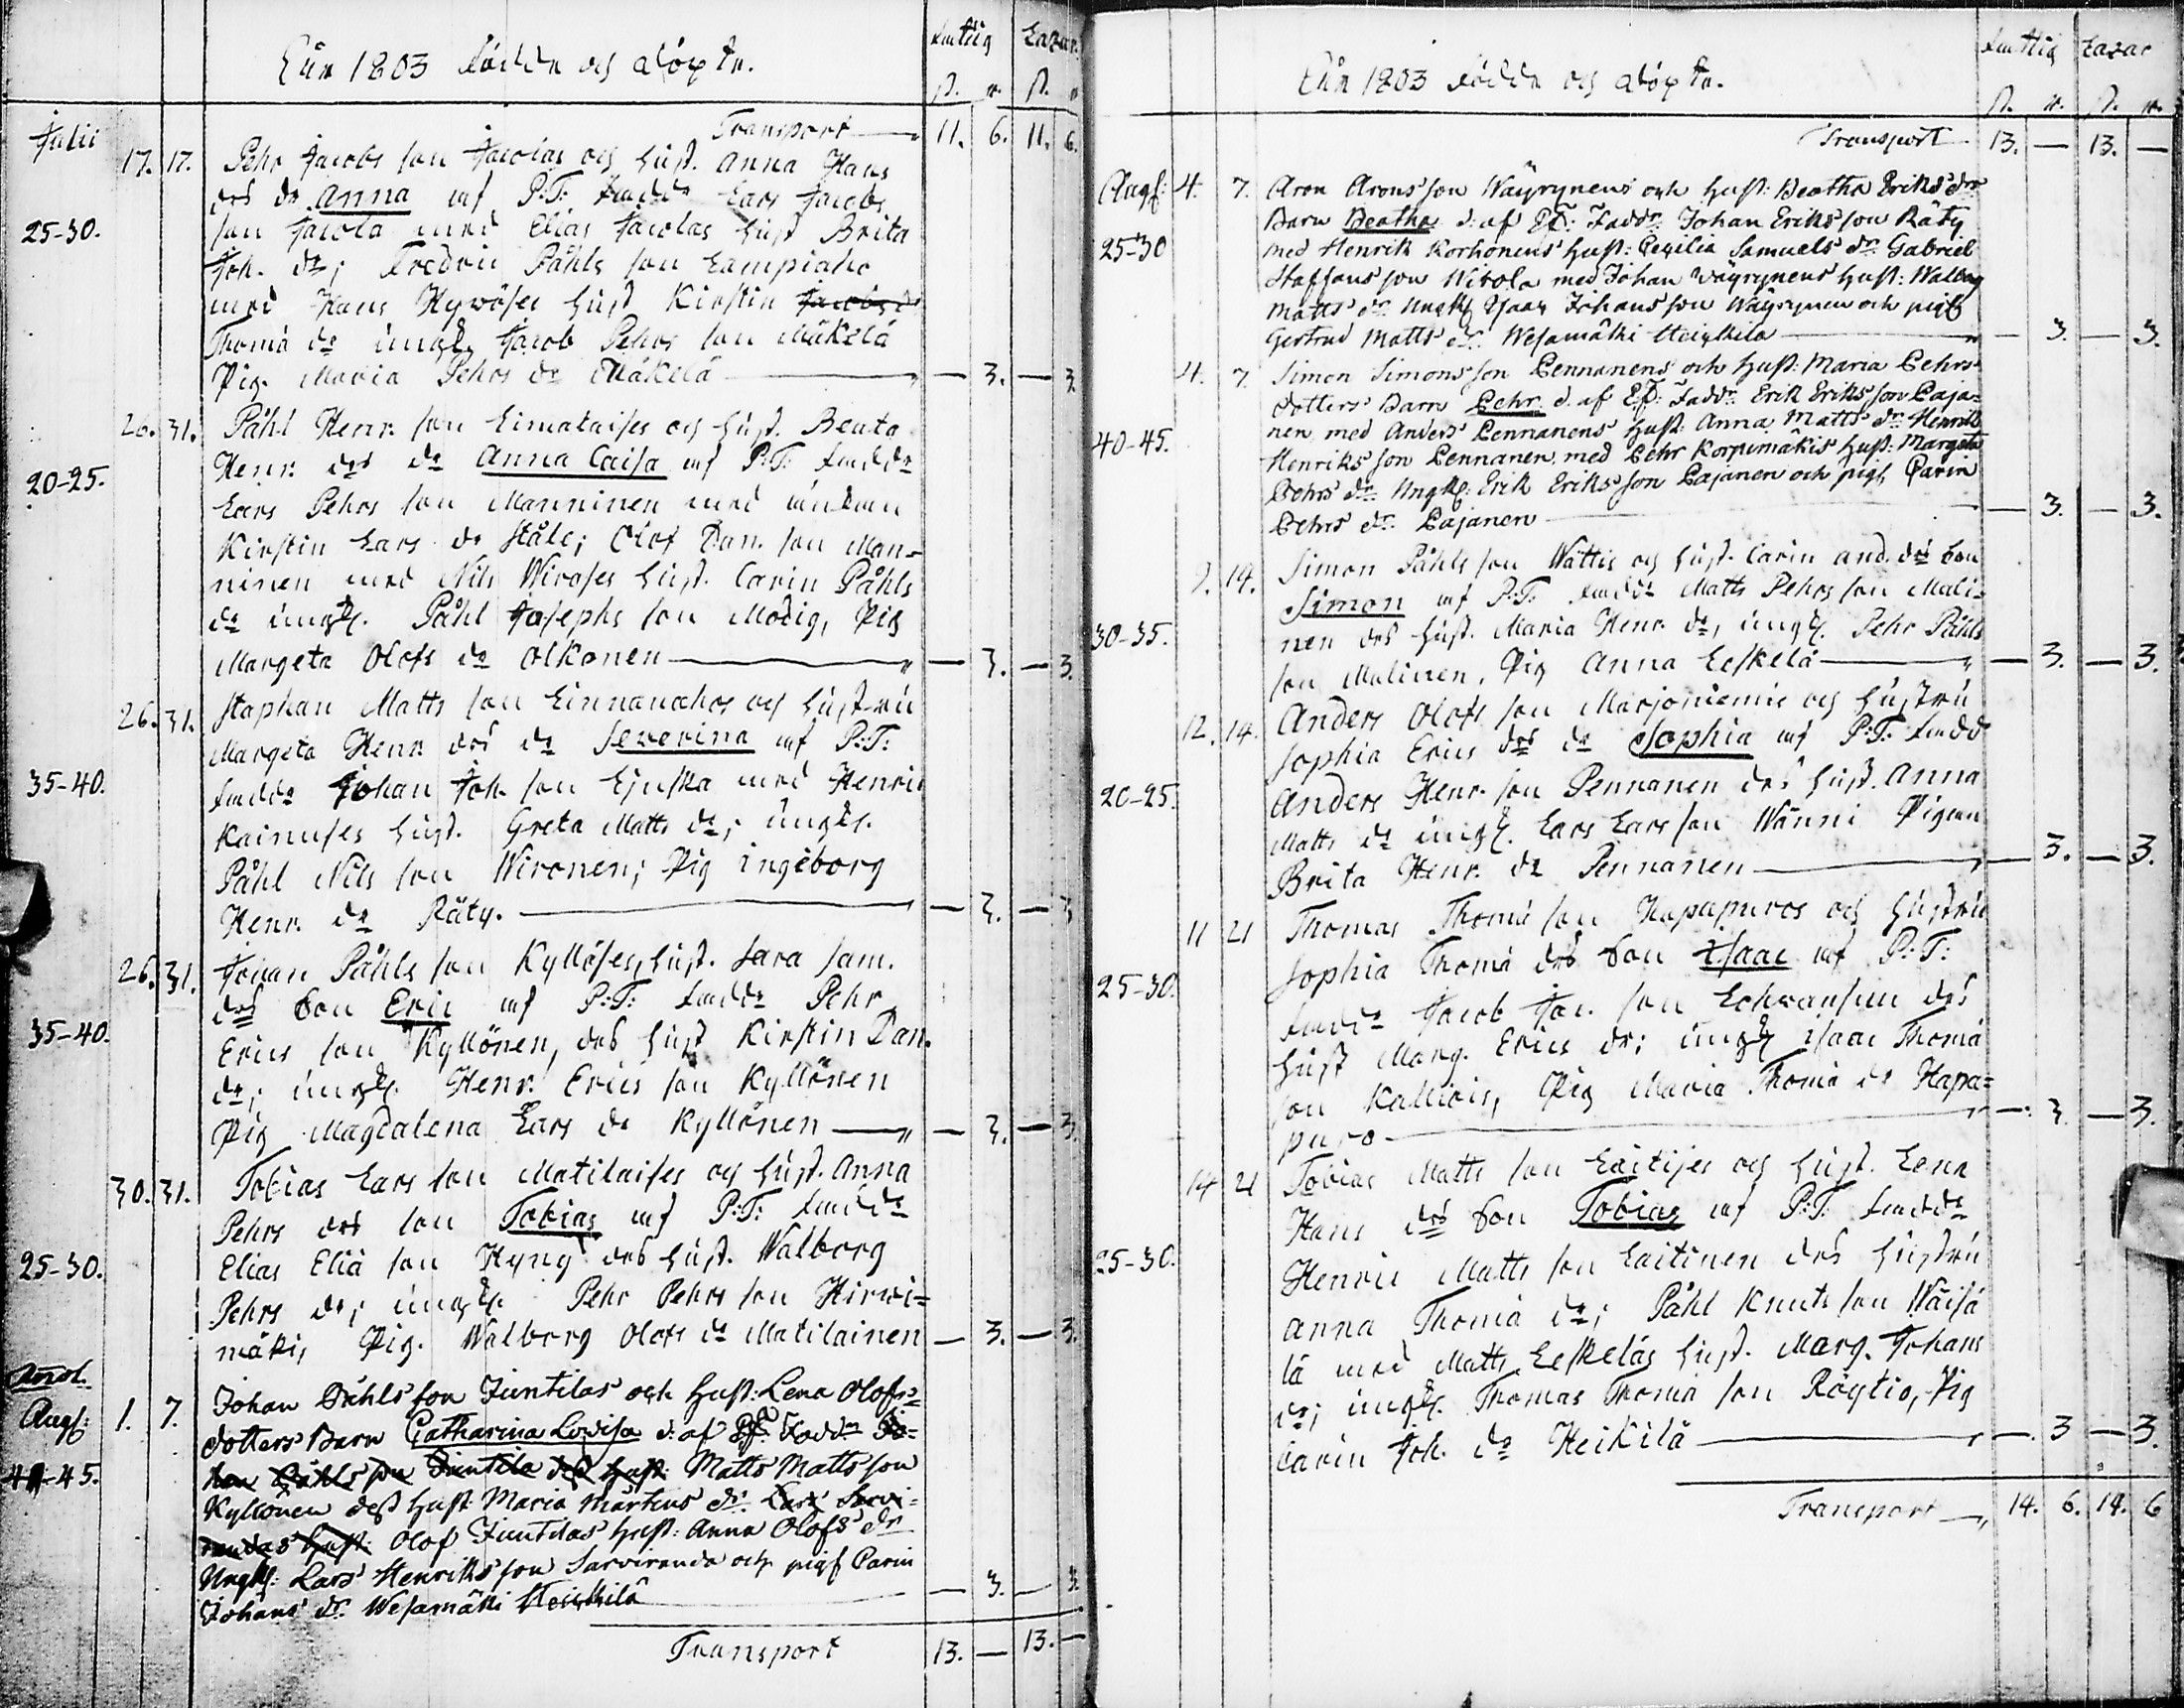 År 1803 Födde och döpte.
fattig Lazar.
ß. r. ß. r
Transport 11. 6. 11. 6.
Julii 17. 17. Pehr Jacobs son Jacolas och hust. Anna Hans
drs dr Anna af P:T: faddr Lars Jacobs
25-30. son Jacola med Elias Jacolas hust Brita
Joh. dr; Fredric Påhls son Lampiaho
med Hans Hywöses hust Kirstin Jacobs dr
Thomä dr ungk. Jacob Pehrs son Mäkelä
Pig. Maria Pehrs dr Mäkelä — 3. — 3.
26. 31. Påhl Henr. son Limataises och hust. Beata
Henr. drs dr Anna Caisa af P:T: faddr
20-25. Lars Pehrs son Manninen med änkan
Kirstin Lars dr Ståle; Olof Dan. son Man-
ninen med Nils Wiroses hust. Carin Påhls
dr ungk. Påhl Josephs son Modig, Pig
Margeta Olofs dr Olkonen — 3. — 3.
26. 31. Staphan Matts son Linnanahos och hustru
Margeta Henr. drs dr Severina af P:T:
35-40. faddr Johan Joh. son Ljuska med Henric
Kainuses hust. Greta Matts dr; ungk.
Påhl Nils son Wironen; Pig Ingeborg
Henr. dr Räty. — 3. — 3
26. 31. Johan Påhls son Kyllöses, hust. Sara Sam.
drs son Eric af P:T: faddr Pehr
35-40. Erics son Kyllönen, des hust Kirstin Dan.
dr; ungk. Henr. Erics son Kyllönen
Pig Magdalena Lars dr Kyllönen — 3. — 3.
30. 31. Tobias Lars son Matilaises och hust. Anna
Pehrs drs son Tobias af P:T: faddr
25-30. Elias Eliä son Hyny des hust. Walborg
Pehrs dr; ungk. Pehr Pehrs son Hirwi=
mäki, Pig. Walborg Olofs dr Matilainen — 3. — 3.
Augs: 1. 7. Johan Påhls son Juntilas och hust: Lena Olofs=
dotters Barn Catharina Lovisa d: af Faddr Jo=
45. han Påhls son Juntila des hust: Matts Matts son
Kyllönen dess hust: Maria Mårtens dr. Lars Sarvi=
randas hust: Olof Juntilas hust: Anna Olofs dr
Ungk: Lars Henriks son Sarviranda och pig Carin
Johans dr. Wesamäki Heickilä — 3. — 3.
Transport 13. — 13. —
År 1803 Födde och döpte.
fattig Lazar
ß. r. ß. r.
Transport 13. — 13. —
Augs: 4. 7. Aron Arons son Wäyrynens och hust: Beatha Eriks drs
Barn Beatha d: af Faddr. Johan Eriks son Räty
25-30 med Henrik Korhonens hust: Cecilia Samuels dr. Gabriel
Staffans son Witola med Johan Wäyrynens hust: Walborg
Matts dr. Ungk Isaac Johans son Wäyrynen och pig
Gertrud Matts dr. Wesamäki Heickila — 3. — 3.
4. 7. Simon Simons son Pennanens och hust: Maria Pehrs
dotters Barn Pehr d. af Faddr. Erik Eriks son Paja=
40-45. nen med Anders Pennanens hust: Anna Matts dr Henrik
Henriks son Pennanen med Pehr Korpimäkis hust: Margeta
Pehrs dr. Ungk: Erik Eriks son Pajanen och pig Carin
Pehrs dr. Pajanen — 3. — 3.
9. 14. Simon Påhls son Wättis och hust. Carin And. drs son
Simon af P:T: faddr Matts Pehrs son Mali-
30-35. nen des hust. Maria Henr. dr, ungk. Pehr Påhls
son Malinen, Pig Anna Leskelä — 3. — 3.
12. 14. Anders Olofs son Marjoniemis och hustru
Sophia Erics drs dr Sophia af P:T: fadd
20-25. Anders Henr. son Pennanen des hust. Anna
Matts dr ungk. Lars Lars son Wänni Pigan
Brita Henr. dr Pennanen — 3. — 3.
11 21 Thomas Thomä son Hapapuros och hustru
Sophia Thomä drs son Isaac af P:T:
25-30. faddr Jacob Jac. son Lehvansuu des
hust Marg. Erics dr; ungk Isaac Thomä
son Kallioin, Pig Maria Thomä dr Hapa=
puro — 3 — 3.
14 21 Tobias Matts son Laitises och hust. Lena
Hans drs son Tobias af P:T: faddr
25-30. Henric Matts son Laitinen des hustru
Anna Thomä dr; Påhl Knuts son Wäisä
lä med Matts Leskeläs hust. Marg. Johans
dr; ungk. Thomas Thomä son Röytiö, Pig
Carin Joh. dr Heikilä — 3 — 3.
Transport 14. 6. 14. 6